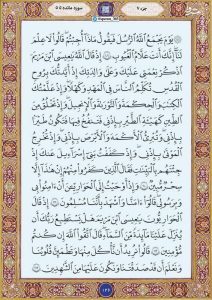 جزء ۷
سوره مائده ۵
۞ يَوْمَ يَجْمَعُ ٱللَّهُ ٱلرُّسُلَ فَيَقُولُ مَاذَآ أُجِبْتُمْ قَالُوا۟ لَا عِلْمَ
لَنَآ إِنَّكَ أَنتَ عَلَّٰمُ ٱلْغُيُوبِ ١٠٩ إِذْ قَالَ ٱللَّهُ يَٰعِيسَى ٱبْنَ مَرْيَمَ
ٱذْكُرْ نِعْمَتِى عَلَيْكَ وَعَلَىٰ وَٰلِدَتِكَ إِذْ أَيَّدتُّكَ بِرُوحِ
ٱلْقُدُسِ تُكَلِّمُ ٱلنَّاسَ فِى ٱلْمَهْدِ وَكَهْلًا وَإِذْ عَلَّمْتُكَ
ٱلْكِتَٰبَ وَٱلْحِكْمَةَ وَٱلتَّوْرَىٰةَ وَٱلْإِنجِيلَ وَإِذْ تَخْلُقُ مِنَ
ٱلطِّينِ كَهَيْـَٔةِ ٱلطَّيْرِ بِإِذْنِى فَتَنفُخُ فِيهَا فَتَكُونُ طَيْرًۢا
بِإِذْنِى وَتُبْرِئُ ٱلْأَكْمَهَ وَٱلْأَبْرَصَ بِإِذْنِى وَإِذْ تُخْرِجُ
ٱلْمَوْتَىٰ بِإِذْنِى وَإِذْ كَفَفْتُ بَنِىٓ إِسْرَٰٓءِيلَ عَنكَ إِذْ
جِئْتَهُم بِٱلْبَيِّنَٰتِ فَقَالَ ٱلَّذِينَ كَفَرُوا۟ مِنْهُمْ إِنْ هَٰذَآ إِلَّا
سِحْرٌ مُّبِينٌ ١١٠ وَإِذْ أَوْحَيْتُ إِلَى ٱلْحَوَارِيِّۦنَ أَنْ ءَامِنُوا۟ بِى
وَبِرَسُولِى قَالُوٓا۟ ءَامَنَّا وَٱشْهَدْ بِأَنَّنَا مُسْلِمُونَ ١١١ إِذْ قَالَ
ٱلْحَوَارِيُّونَ يَٰعِيسَى ٱبْنَ مَرْيَمَ هَلْ يَسْتَطِيعُ رَبُّكَ أَن
يُنَزِّلَ عَلَيْنَا مَآئِدَةً مِّنَ ٱلسَّمَآءِ قَالَ ٱتَّقُوا۟ ٱللَّهَ إِن كُنتُم
مُّؤْمِنِينَ ١١٢ قَالُوا۟ نُرِيدُ أَن نَّأْكُلَ مِنْهَا وَتَطْمَئِنَّ قُلُوبُنَا
وَنَعْلَمَ أَن قَدْ صَدَقْتَنَا وَنَكُونَ عَلَيْهَا مِنَ ٱلشَّٰهِدِينَ ١١٣
١٢٦